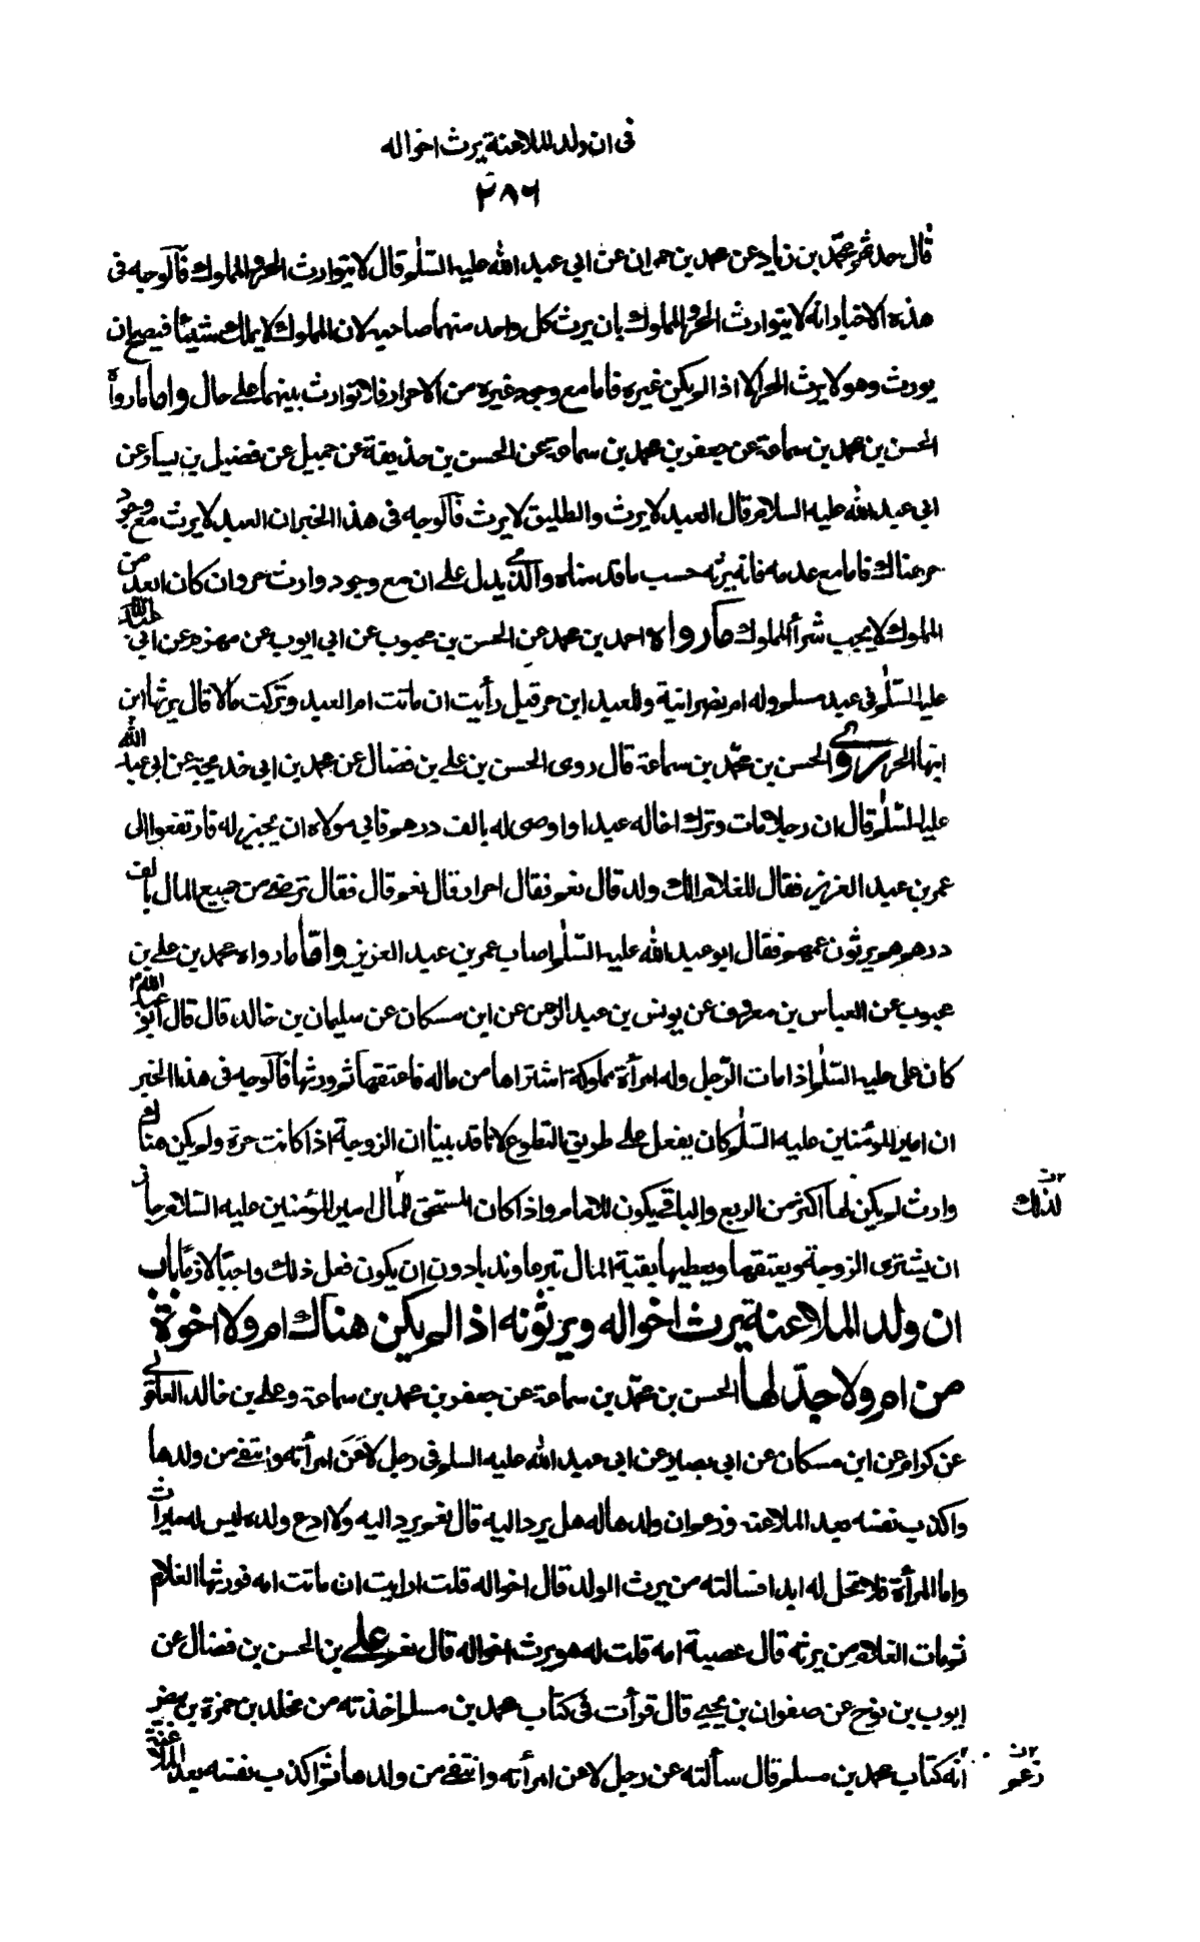 فى ان ولد الملاعنة يرث اخواله
٢٨٦
قال حدثهم محمّد بن زياد عن محمد بن حمران عن ابي عبد الله عليه السّلم قال لا يتوارث الحر والمملوك فآلوجه فى
هذه الاخبار انه لا يتوارث الحر والمملوك بان يرث كل واحد منهما صاحبه لان المملوك لا يملك شيئا فيصح ان
يورث وهو لا يرث الحر الا اذا لم يكن غيره فاما مع وجود غيره من الاحرار فلا توارث بينهما على حال واما ما رواه
الحسن بن محمد بن سماعة عن جعفر بن محمد بن سماعة عن الحسن بن حذيفة عن جميل عن فضيل بن يسار عن
ابي عبد الله عليه السلام قال العبد لا يرث والطليق لا يرث فآلوجه فى هذا الخبر ان العبد لا يرث مع وجود
حر هناك فاما مع عدمه فانه يرثه حسب ما قدمناه والذي يدل على ان مع وجود وارث حر وان كان ابعد من
المملوك لا يجب شرأ المملوك ما رواه احمد بن محمد عن الحسن بن محبوب عن ابي ايوب عن مهزم عن ابي عبد الله
عليه السّلم فى عبد مسلم وله ام نصرانية وللعبد ابن حر قيل رأيت ان ماتت ام العبد وتركت مالا قال يرثها ابن
ابنها الحر روى الحسن بن محمّد بن سماعة قال روى الحسن بن علي بن فضال عن محمد بن ابي خديجة عن ابي عبد الله
عليه السّلم قال ان رجلا مات وترك اخا له عبدا واوصى له بالف درهم فابي مولاه ان يجيز له فارتفعوا الى
عمر بن عبد العزيز فقال للغلام الك ولد قال نعم فقال احرار قال نعم قال فقال ترضى من جميع المال بالف
درهم هم يرثون عمهم فقال ابو عبد الله عليه السّلم اصاب عمر بن عبد العزيز وامّا ما رواه محمد بن علي بن
محبوب عن العباس بن معروف عن يونس بن عبد الرحمن عن ابن مسكان عن سليمان بن خالد قال قال ابو عبد الله ع
كان على عليه السّلم اذا مات الرّجل وله امرأة مملوكة اشتراها من ماله فاعتقها ثم ورثها فآلوجه فى هذا الخبر
ان امير المؤمنين عليه السّلم كان يفعل على طريق التطوع لانا قد بينا ان الزوجة اذا كانت حرة ولم يكن هناك
وارث لم يكن لها اكثر من الربع والباقي يكون للامام واذا كان المستحق للمال امير المؤمنين عليه السّلام جاز
لذلك
ان يشترى الزوجة ويعتقها ويعطيها بقية المال تبرعا وندبا دون ان يكون فعل ذلك واجبًا لازمًا باب
ان ولد الملاعنة يرث اخواله ويرثونه اذا لم يكن هناك ام ولا اخوة
من ام ولا جدّ لها الحسن بن محمّد بن سماعة عن جعفر بن محمد بن سماعة وعلي بن خالد العاقولي
عن كرام عن ابن مسكان عن ابي بصير عن ابي عبد الله عليه السلم فى رجل لاعن امرأته وانتفى من ولدها
واكذب نفسه بعد الملاعنة وزعم ان ولدها له هل يرد اليه قال نعم يرد اليه ولا ادع ولده ليس له ميراث
واما المرأة فلا تحل له ابدا فسالته من يرث الولد قال اخواله قلت ارايت ان ماتت امه فورثها الغلام
ثم مات الغلام من يرثه قال عصبة امه قلت له هو يرث اخواله قال نعم علي بن الحسن بن فضال عن
ايوب بن نوح عن صفوان بن يحيي قال قرأت فى كتاب محمد بن مسلم اخذته من مخلد بن حمزة بن بيض
زعم انه كتاب محمد بن مسلم قال سألته عن رجل لاعن امرأته وانتفى من ولدها ثم اكذب نفسه بعد الملاعنة